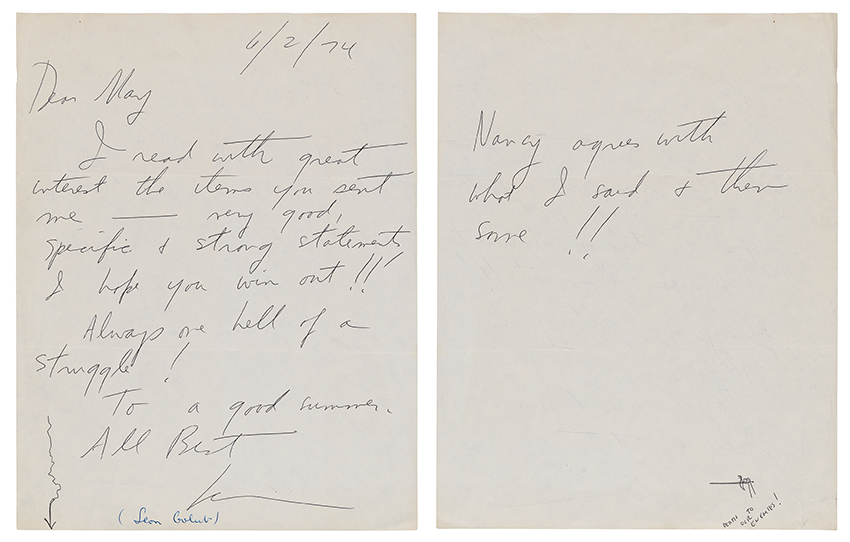 6/2/74
Dear May
I read with great
interest the items you sent
me — very good,
specific & strong statements
I hope you win out!!!
Always one hell of a
struggle!
To a good summer.
All Best
Leon
(Leon Golub)
Nancy agrees with
what I said & then
some!!
DEATH TO
OUR
ENEMIES!